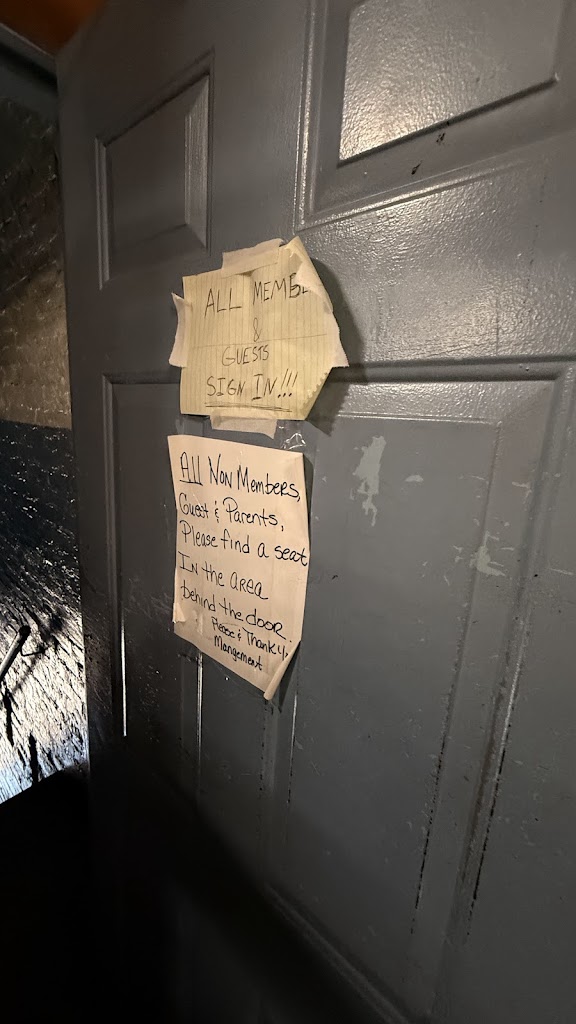 ALL MEMB
&
GUESTS
SIGN IN!!!
All Non Members,
Guest & Parents,
Please find a seat
In the area
behind the door.
Please & Thank y
Mangement